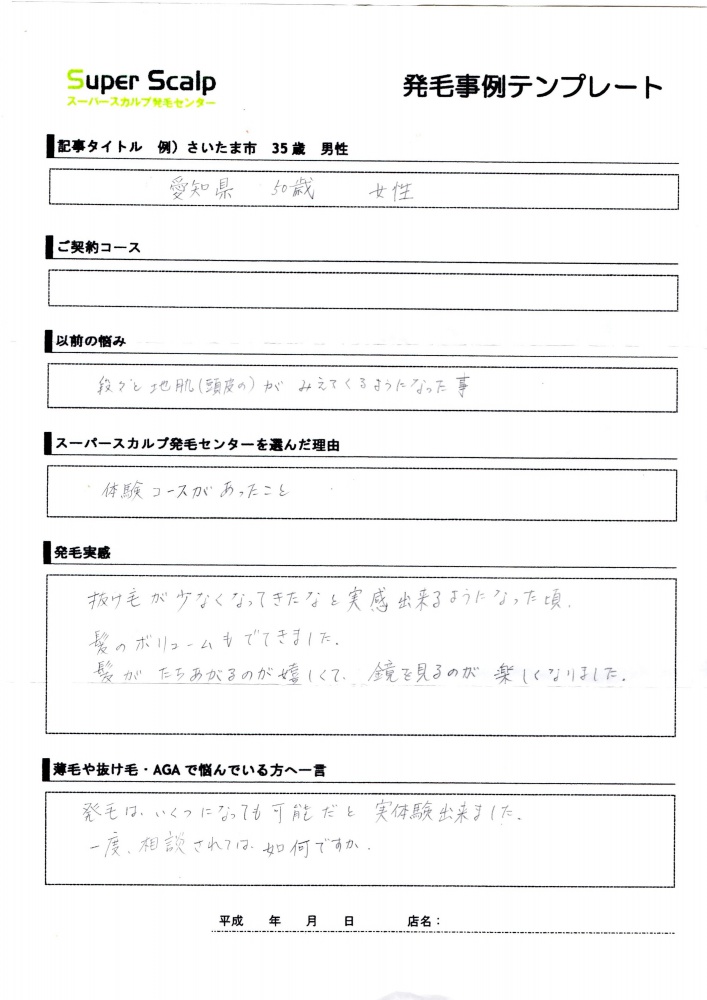 Super Scalp
スーパースカルプ発毛センター
発毛事例テンプレート
記事タイトル 例）さいたま市 35歳 男性
愛知県 50歳 女性
ご契約コース
以前の悩み
段々と地肌(頭皮の)が みえてくるようになった事
スーパースカルプ発毛センターを選んだ理由
体験コースがあったこと
発毛実感
抜け毛が少なくなってきたなと実感出来るようになった頃、
髪のボリュームもでてきました。
髪が たちあがるのが嬉しくて、鏡を見るのが 楽しくなりました。
薄毛や抜け毛・AGAで悩んでいる方へ一言
発毛は、いくつになっても可能だと 実体験出来ました。
一度、相談されては 如何ですか。
平成 年 月 日 店名：